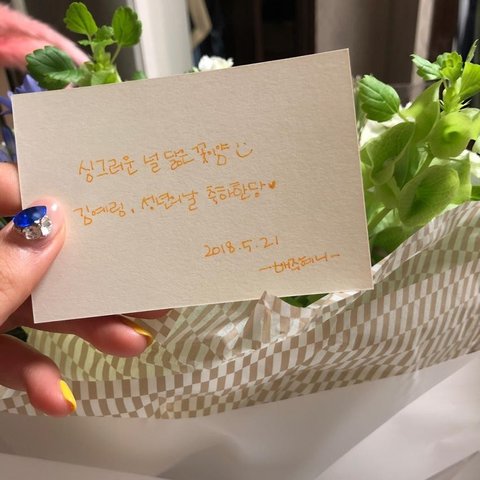 싱그러운 널 닮은 꽃이얌 :)
김예링, 성년의날 축하한당♥
2018.5.21
-배주혜니-